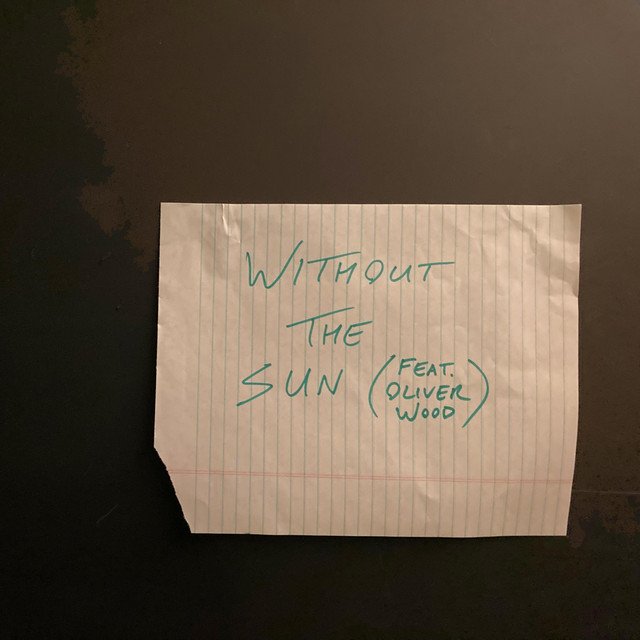 WITHOUT
THE
SUN (FEAT.
OLIVER
WOOD)